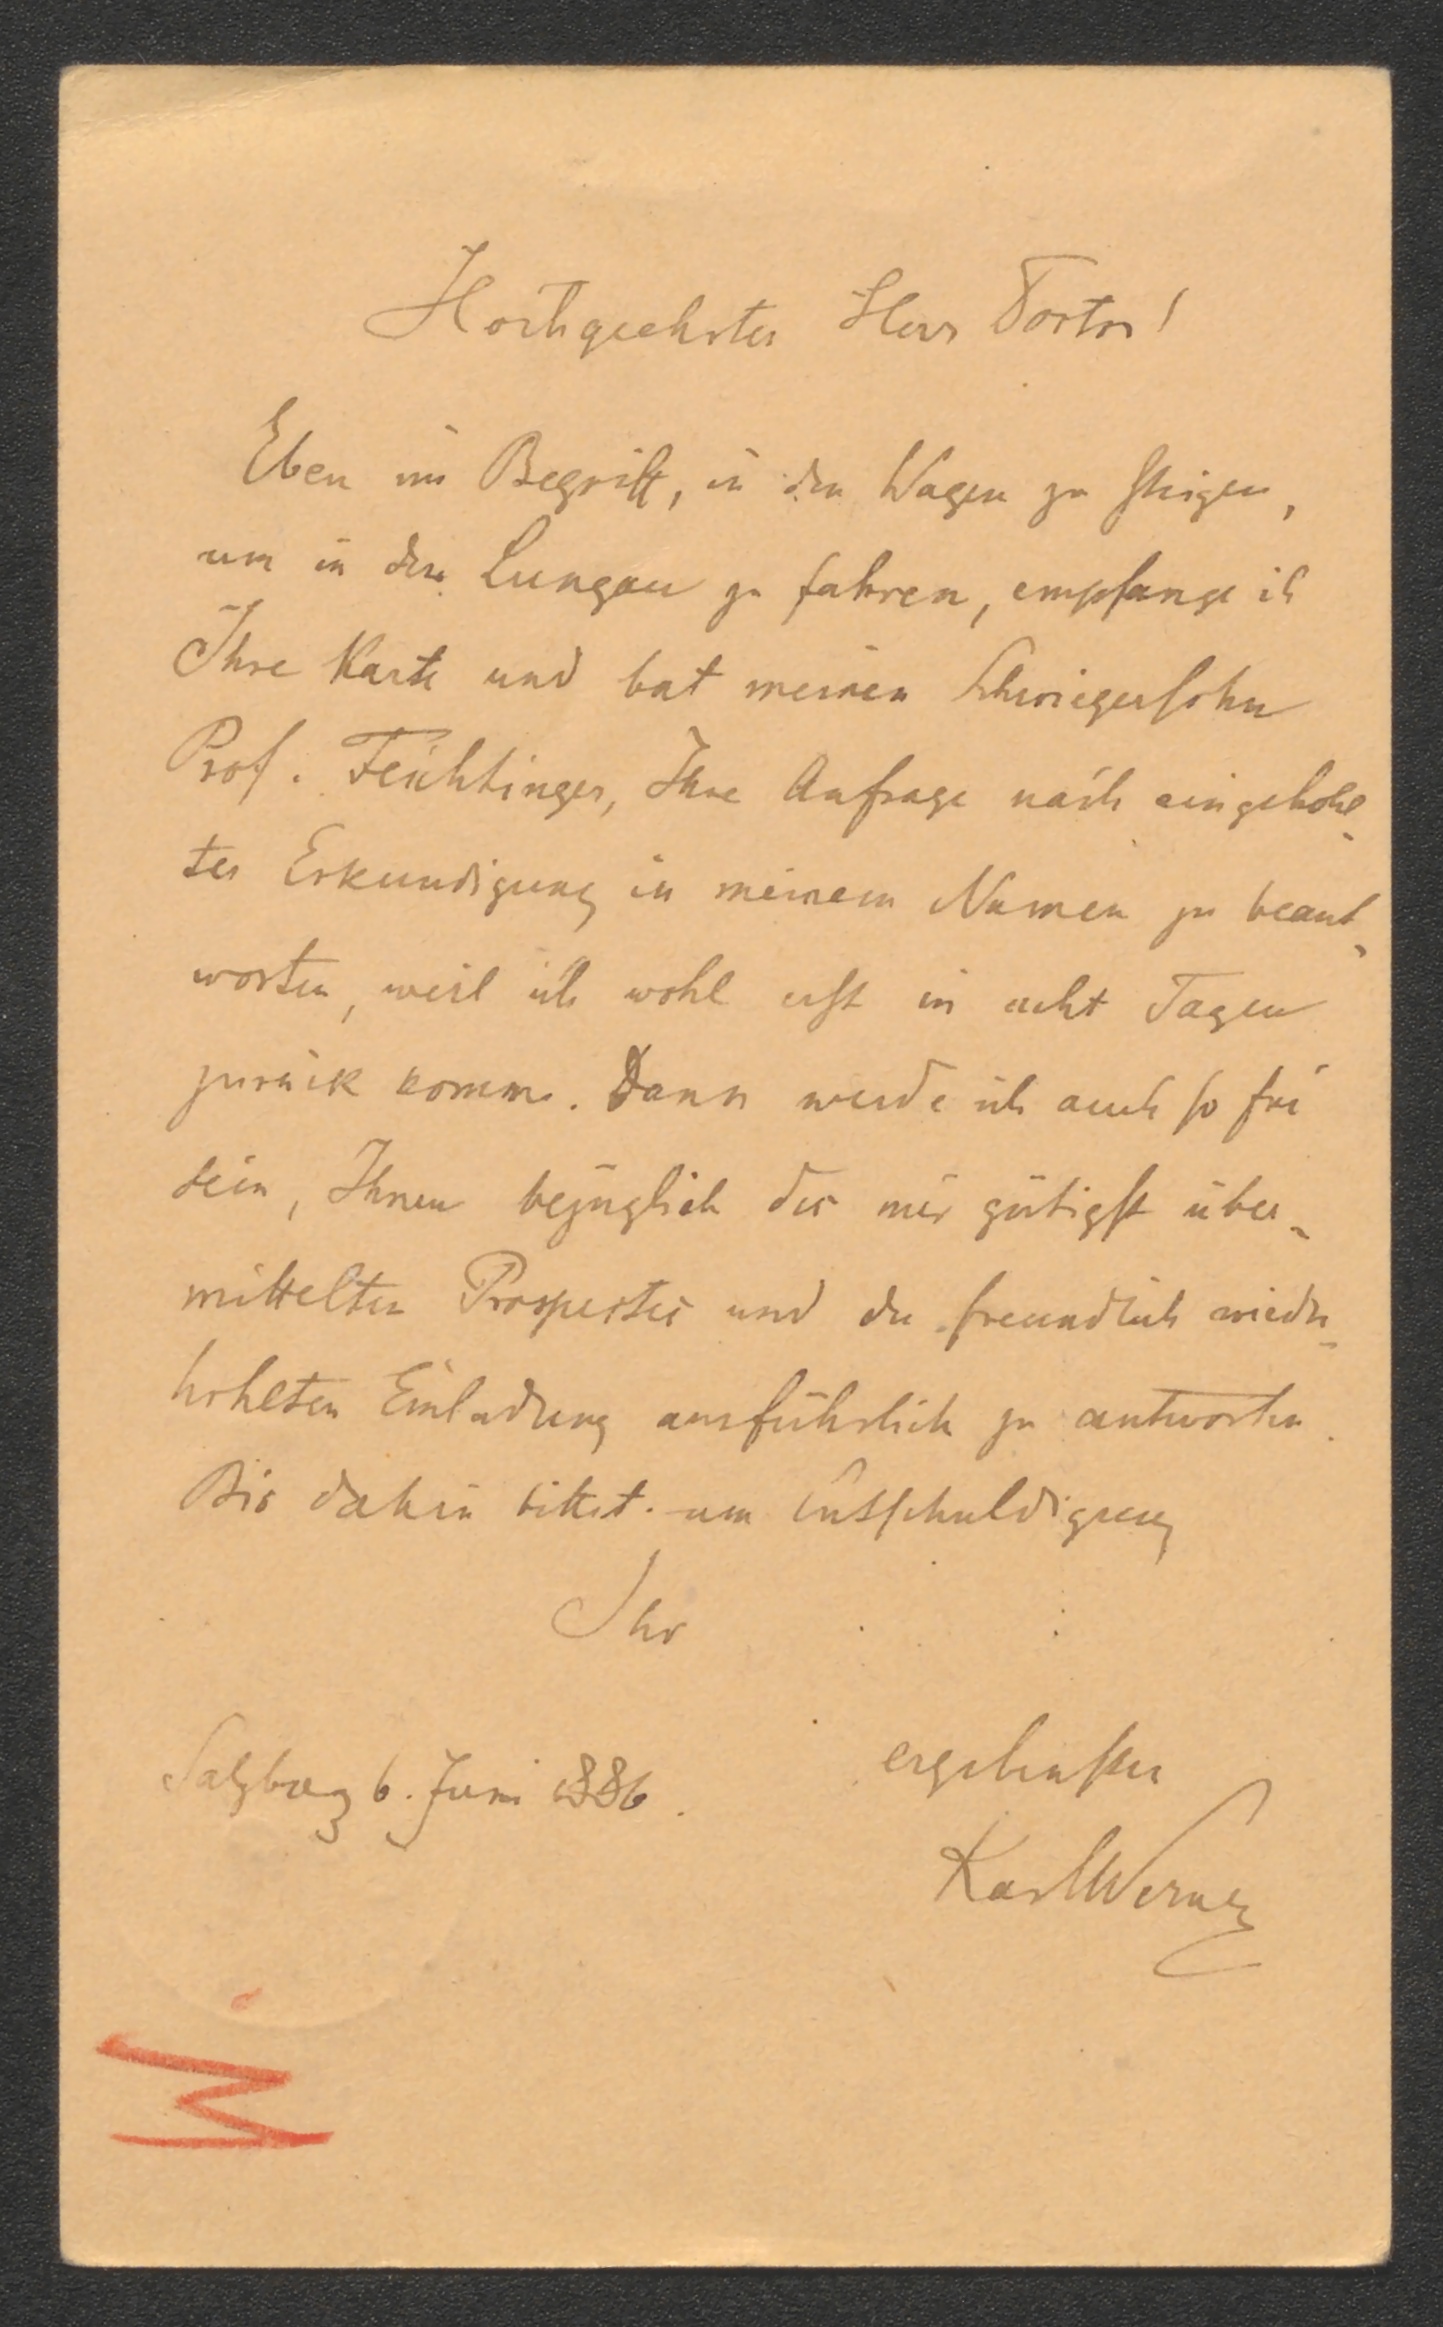 Hochgeehrter Herr Doctor!
Eben im Begriff, in den Wagen zu steigen,
um in den Lungau zu fahren, empfange ich
Ihre Karte und bat meinen Schwiegersohn
Prof. Feichtinger, Ihre Anfrage nach eingehohl-
ter Erkundigung in meinem Namen zu beant-
worten, weil ich wohl erst in acht Tagen
zurück komme. Dann werde ich auch so frei
sein, Ihnen bezüglich des mir gütigst über-
mittelten Prospectes und der freundlich wieder-
hohlten Einladung ausführlich zu antworten.
Bis dahin bittet um Entschuldigung
Ihr
ergebenster
Salzburg 6. Juni 1886.
Karl Werner